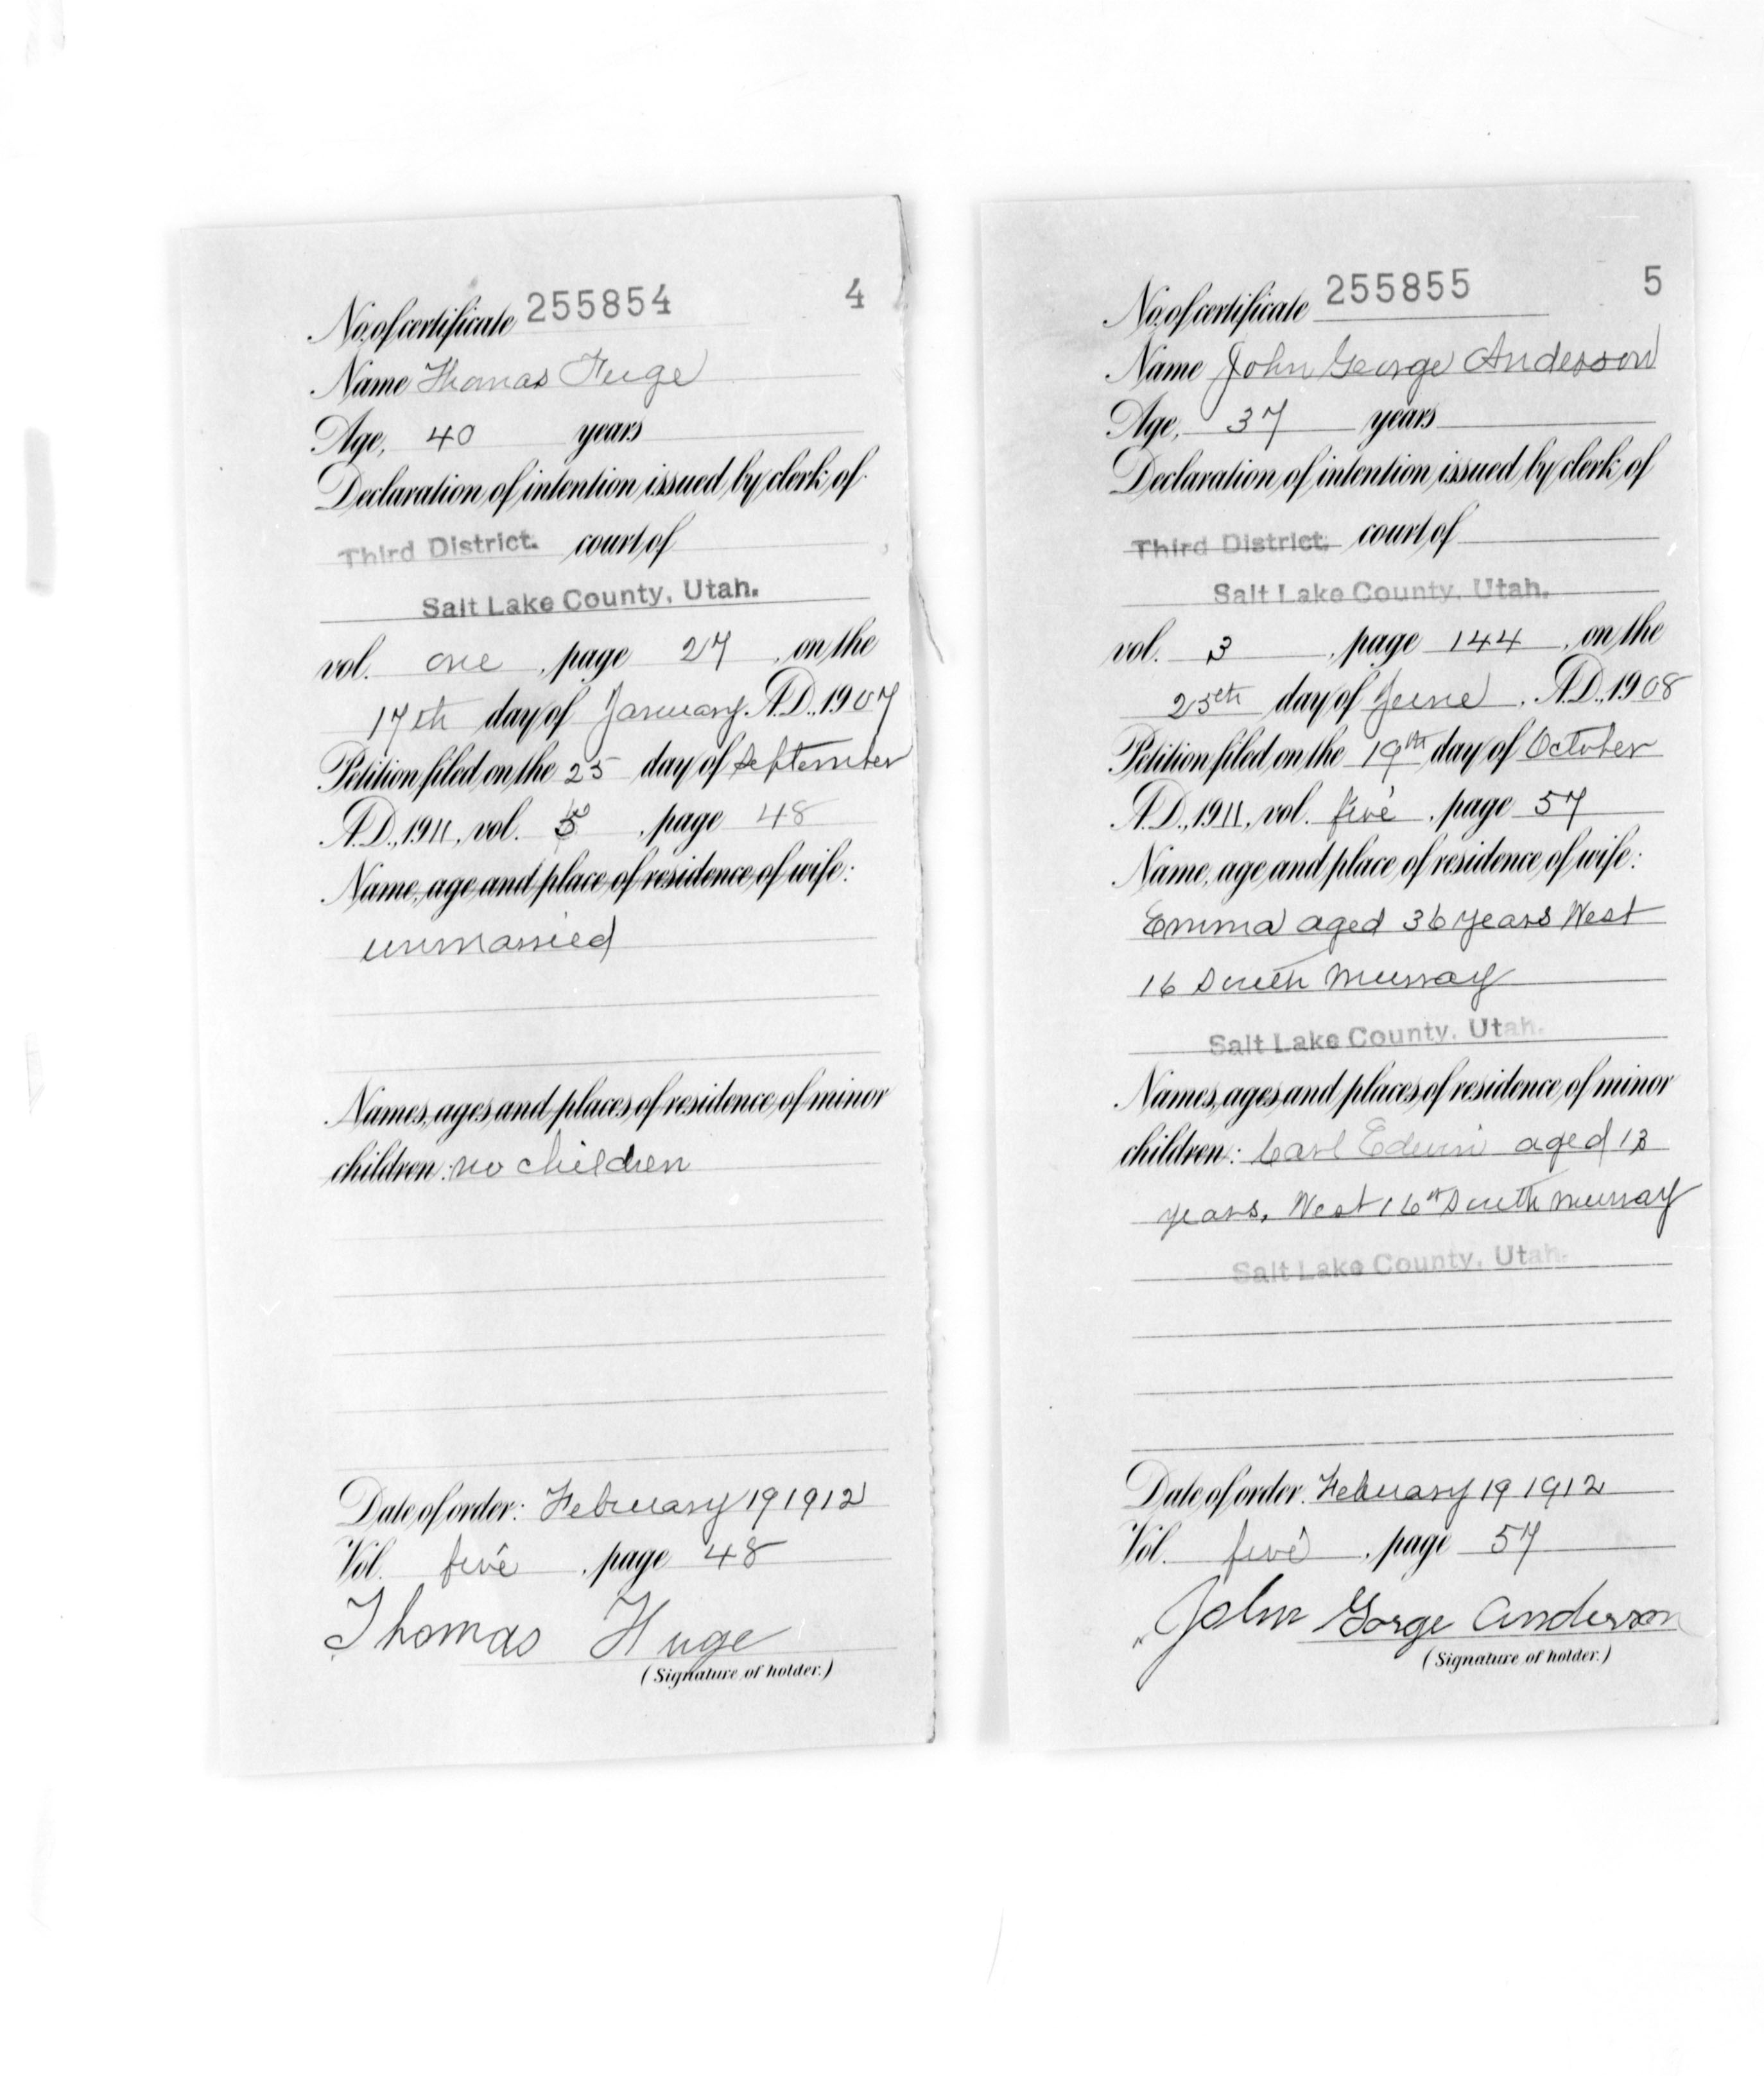 No. of certificate 255854 4
Name Thomas Huge
Age, 40 years
Declaration of intention issued by clerk of
Third District. court of
Salt Lake County, Utah.
vol. one, page 27, on the
17th day of January, A.D., 1907
Petition filed on the 25 day of September
A.D., 1911, vol. 5, page 48
Name, age and place of residence of wife:
unmarried
Names, ages and places of residence of minor
children: no children
Date of order: February 19 1912
Vol. five, page 48
Thomas Huge
(Signature of holder.)
No. of certificate 255855 5
Name John George Anderson
Age, 37 years
Declaration of intention issued by clerk of
Third District. court of
Salt Lake County, Utah.
vol. 3, page 144, on the
25th day of June, A.D., 1908
Petition filed on the 19th day of October
A.D., 1911, vol. five, page 57
Name, age and place of residence of wife:
Emma aged 36 years West
16 South Murray
Salt Lake County, Utah.
Names, ages and places of residence of minor
children: Carl Edwin aged 13
years, West 16th South Murray
Salt Lake County, Utah.
Date of order: February 19 1912
Vol. five, page 57
John Gorge Anderson
(Signature of holder.)